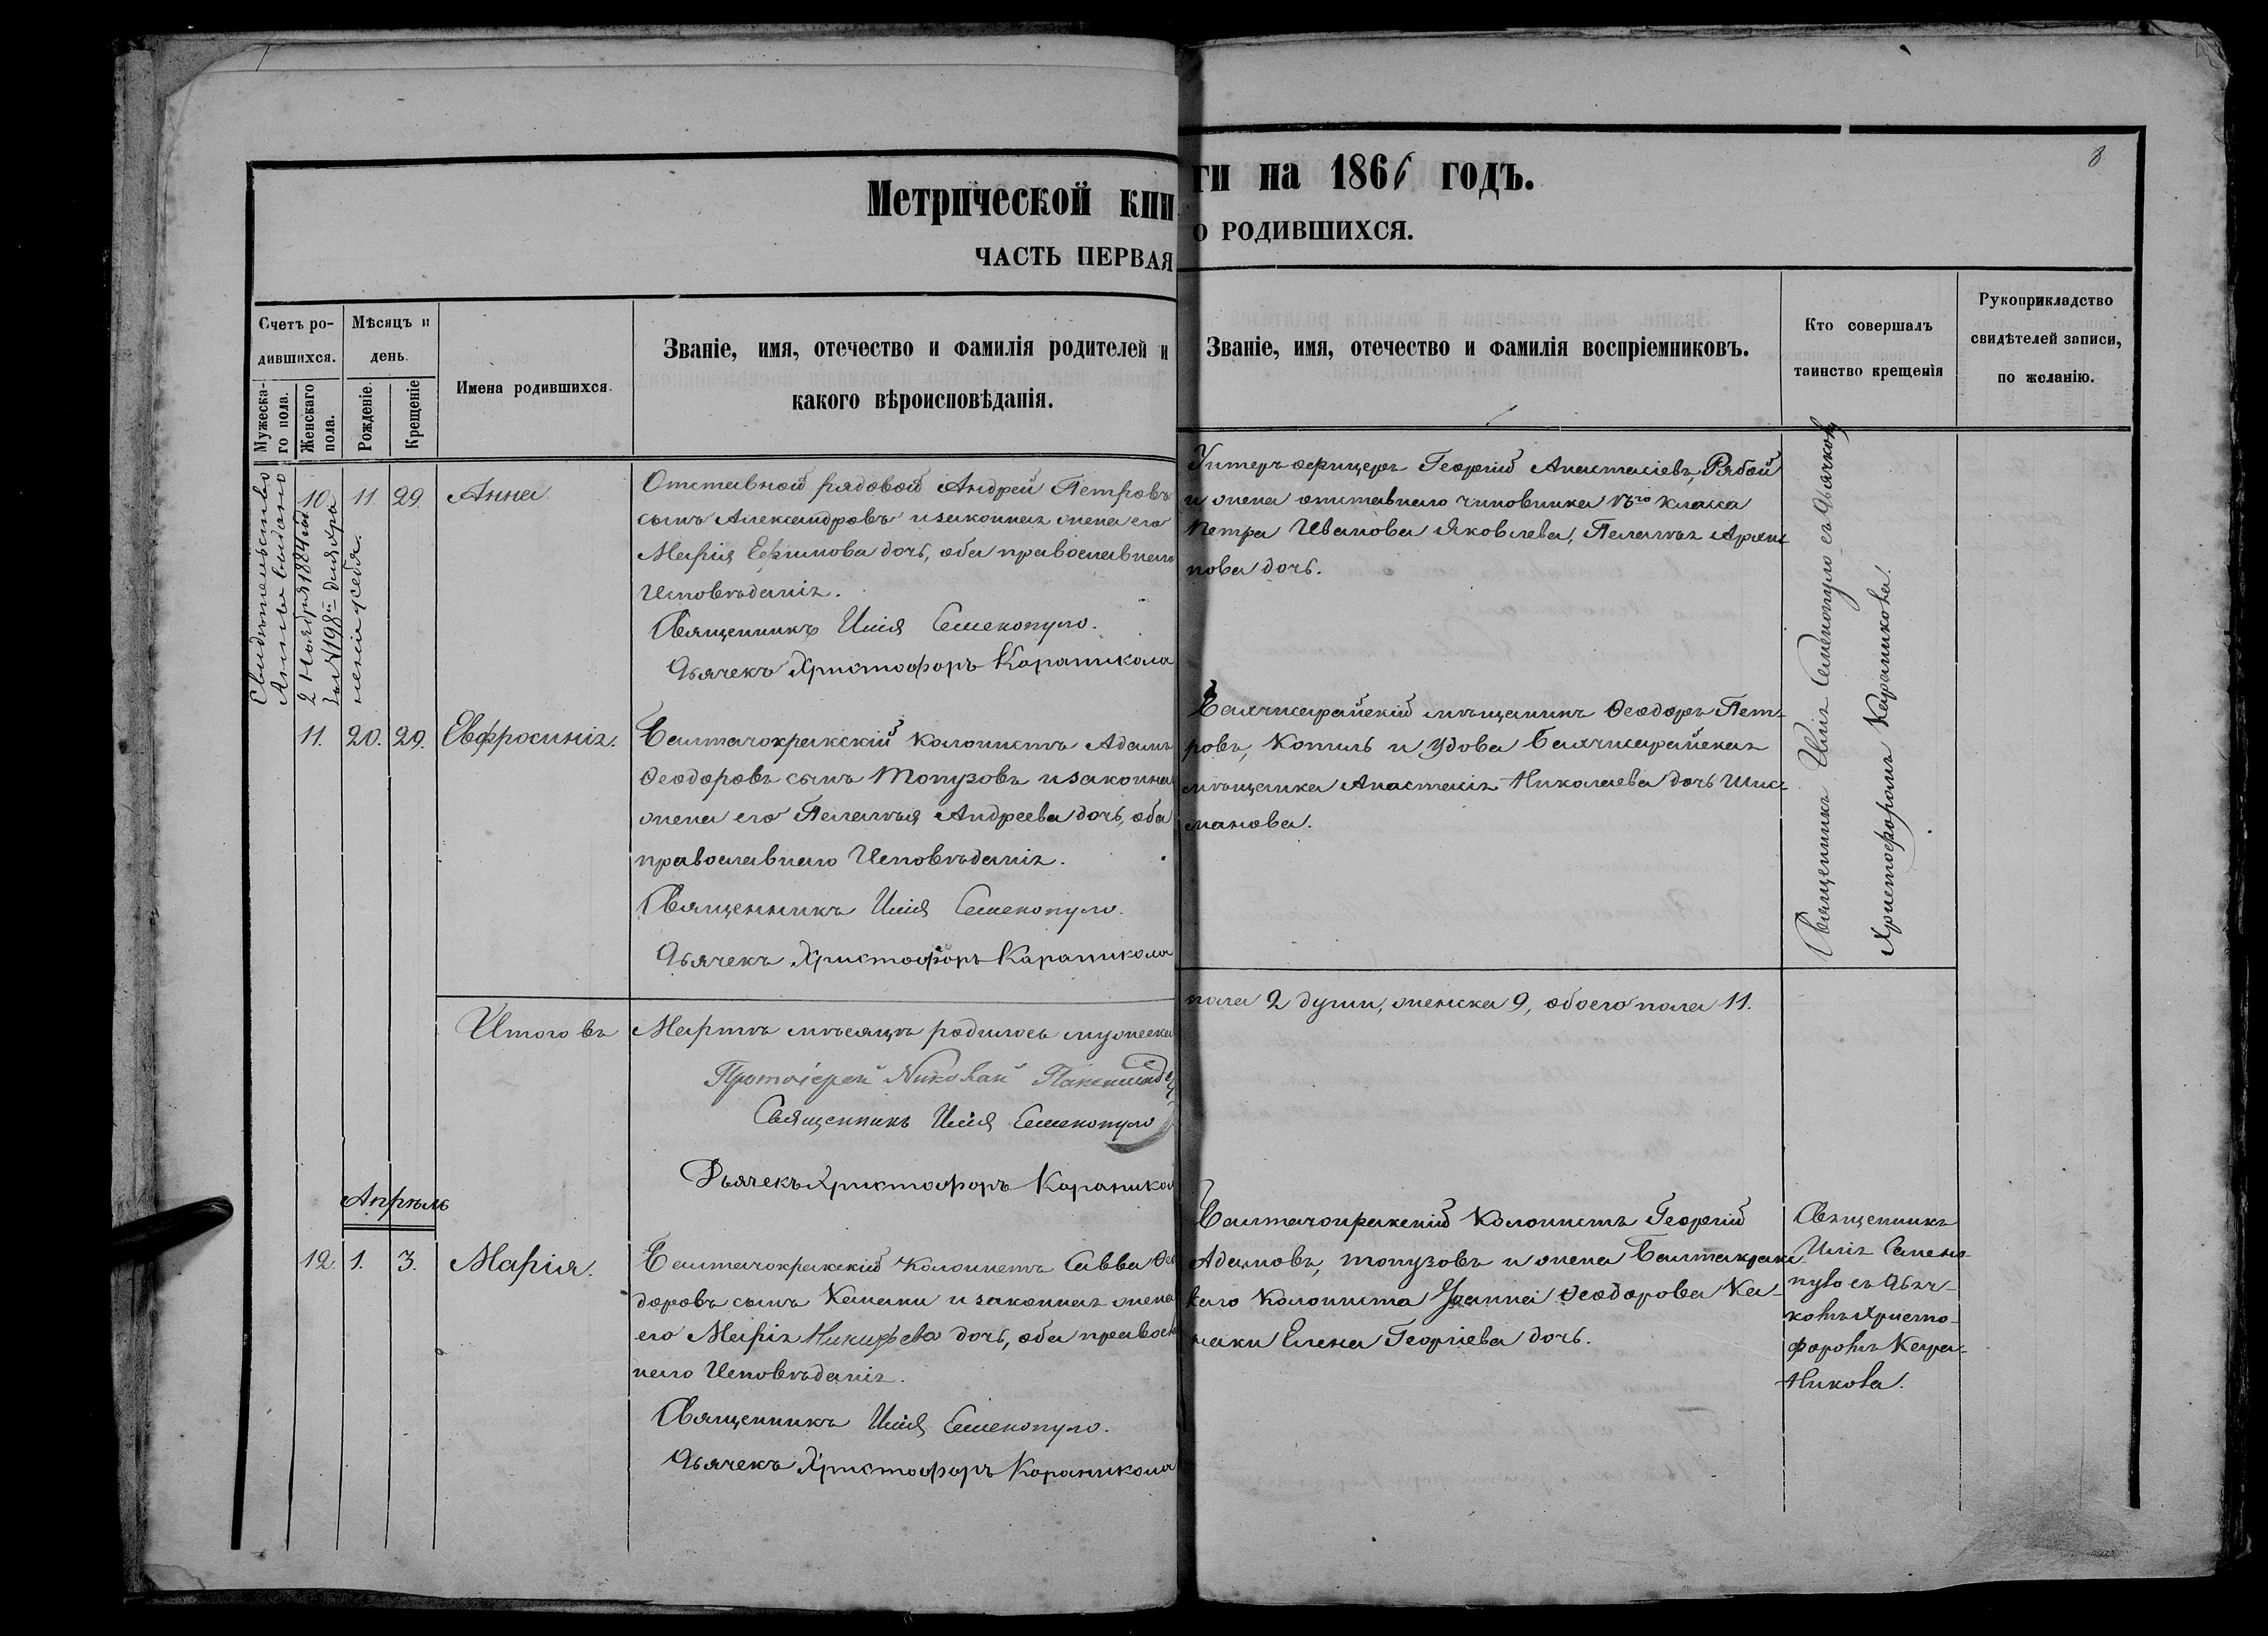 Метрической кни
ги на 1866 годъ.
ЧАСТЬ ПЕРВАЯ
О РОДИВШИХСЯ.
8
Счетъ ро-
дившихся.
Мужеска-
го пола.
Женскаго
пола.
Мѣсяцъ и
день.
Рожденіе.
Крещеніе
Имена родившихся.
Званіе, имя, отечество и фамилія родителей и
какого вѣроисповѣданія.
Званіе, имя, отечество и фамилія воспріемниковъ.
Кто совершалъ
таинство крещенія
Рукоприкладство
свидѣтелей записи,
по желанію.
Свидѣтельство
Аннѣ выдано
2 Ноября 1884 года
за №198
10. 11. 29. Анна
Отставной рядовой Андрей Петровъ
сынъ Александровъ и законная жена его
Марія Ефимова дочь, оба православнаго
Исповѣданія.
Священникъ Илія Семенопуло.
Дьячекъ Христофоръ Караникола
Унтеръ офицеръ Георгій Анастасіевъ, Рябой
и жена отставнаго чиновника класса
Петра Иванова Яковлева, Пелагія
нова дочь.
Священникъ Илія Семенопуло съ Дьячкомъ
Христофоромъ Караникола.
11. 20. 29. Евфросинія.
Балтачокракскій колонистъ Адамъ
Ѳеодоровъ сынъ Топузовъ и законная
жена его Пелагія Андреева дочь, оба
православнаго Исповѣданія.
Священникъ Илія Семенопуло.
Дьячекъ Христофоръ Караникола
Бахчисарайскій мѣщанинъ Ѳеодоръ Пет-
ровъ, Копиль и удова Бахчисарайская
мѣщанка Анастасія Николаева дочь Шис-
манова.
Итого въ Мартѣ мѣсяцѣ родилось мужеска
пола 2 души, женска 9, обоего пола 11.
Протоіерей Николай
Священникъ Илія Семенопуло
Дьячекъ Христофоръ Караникол
Апрѣль
12. 1. 3. Марія.
Балтачокракскій колонистъ Савва Ѳео
доровъ сынъ Канаки и законная жена
его Марія Никифорова дочь, оба правосл
наго Исповѣданія.
Священникъ Илія Семенопуло.
Дьячекъ Христофоръ Караникола
Балтачокракскій Колонистъ Георгій
Адамовъ, Топузовъ и жена Балтачокрак
скаго Колониста Іоанна Ѳеодорова Ка-
наки Елена Георгіева дочь.
Священникъ
Илія Семено-
пуло съ Дьяч-
комъ Христо-
форомъ Кара-
Никола.